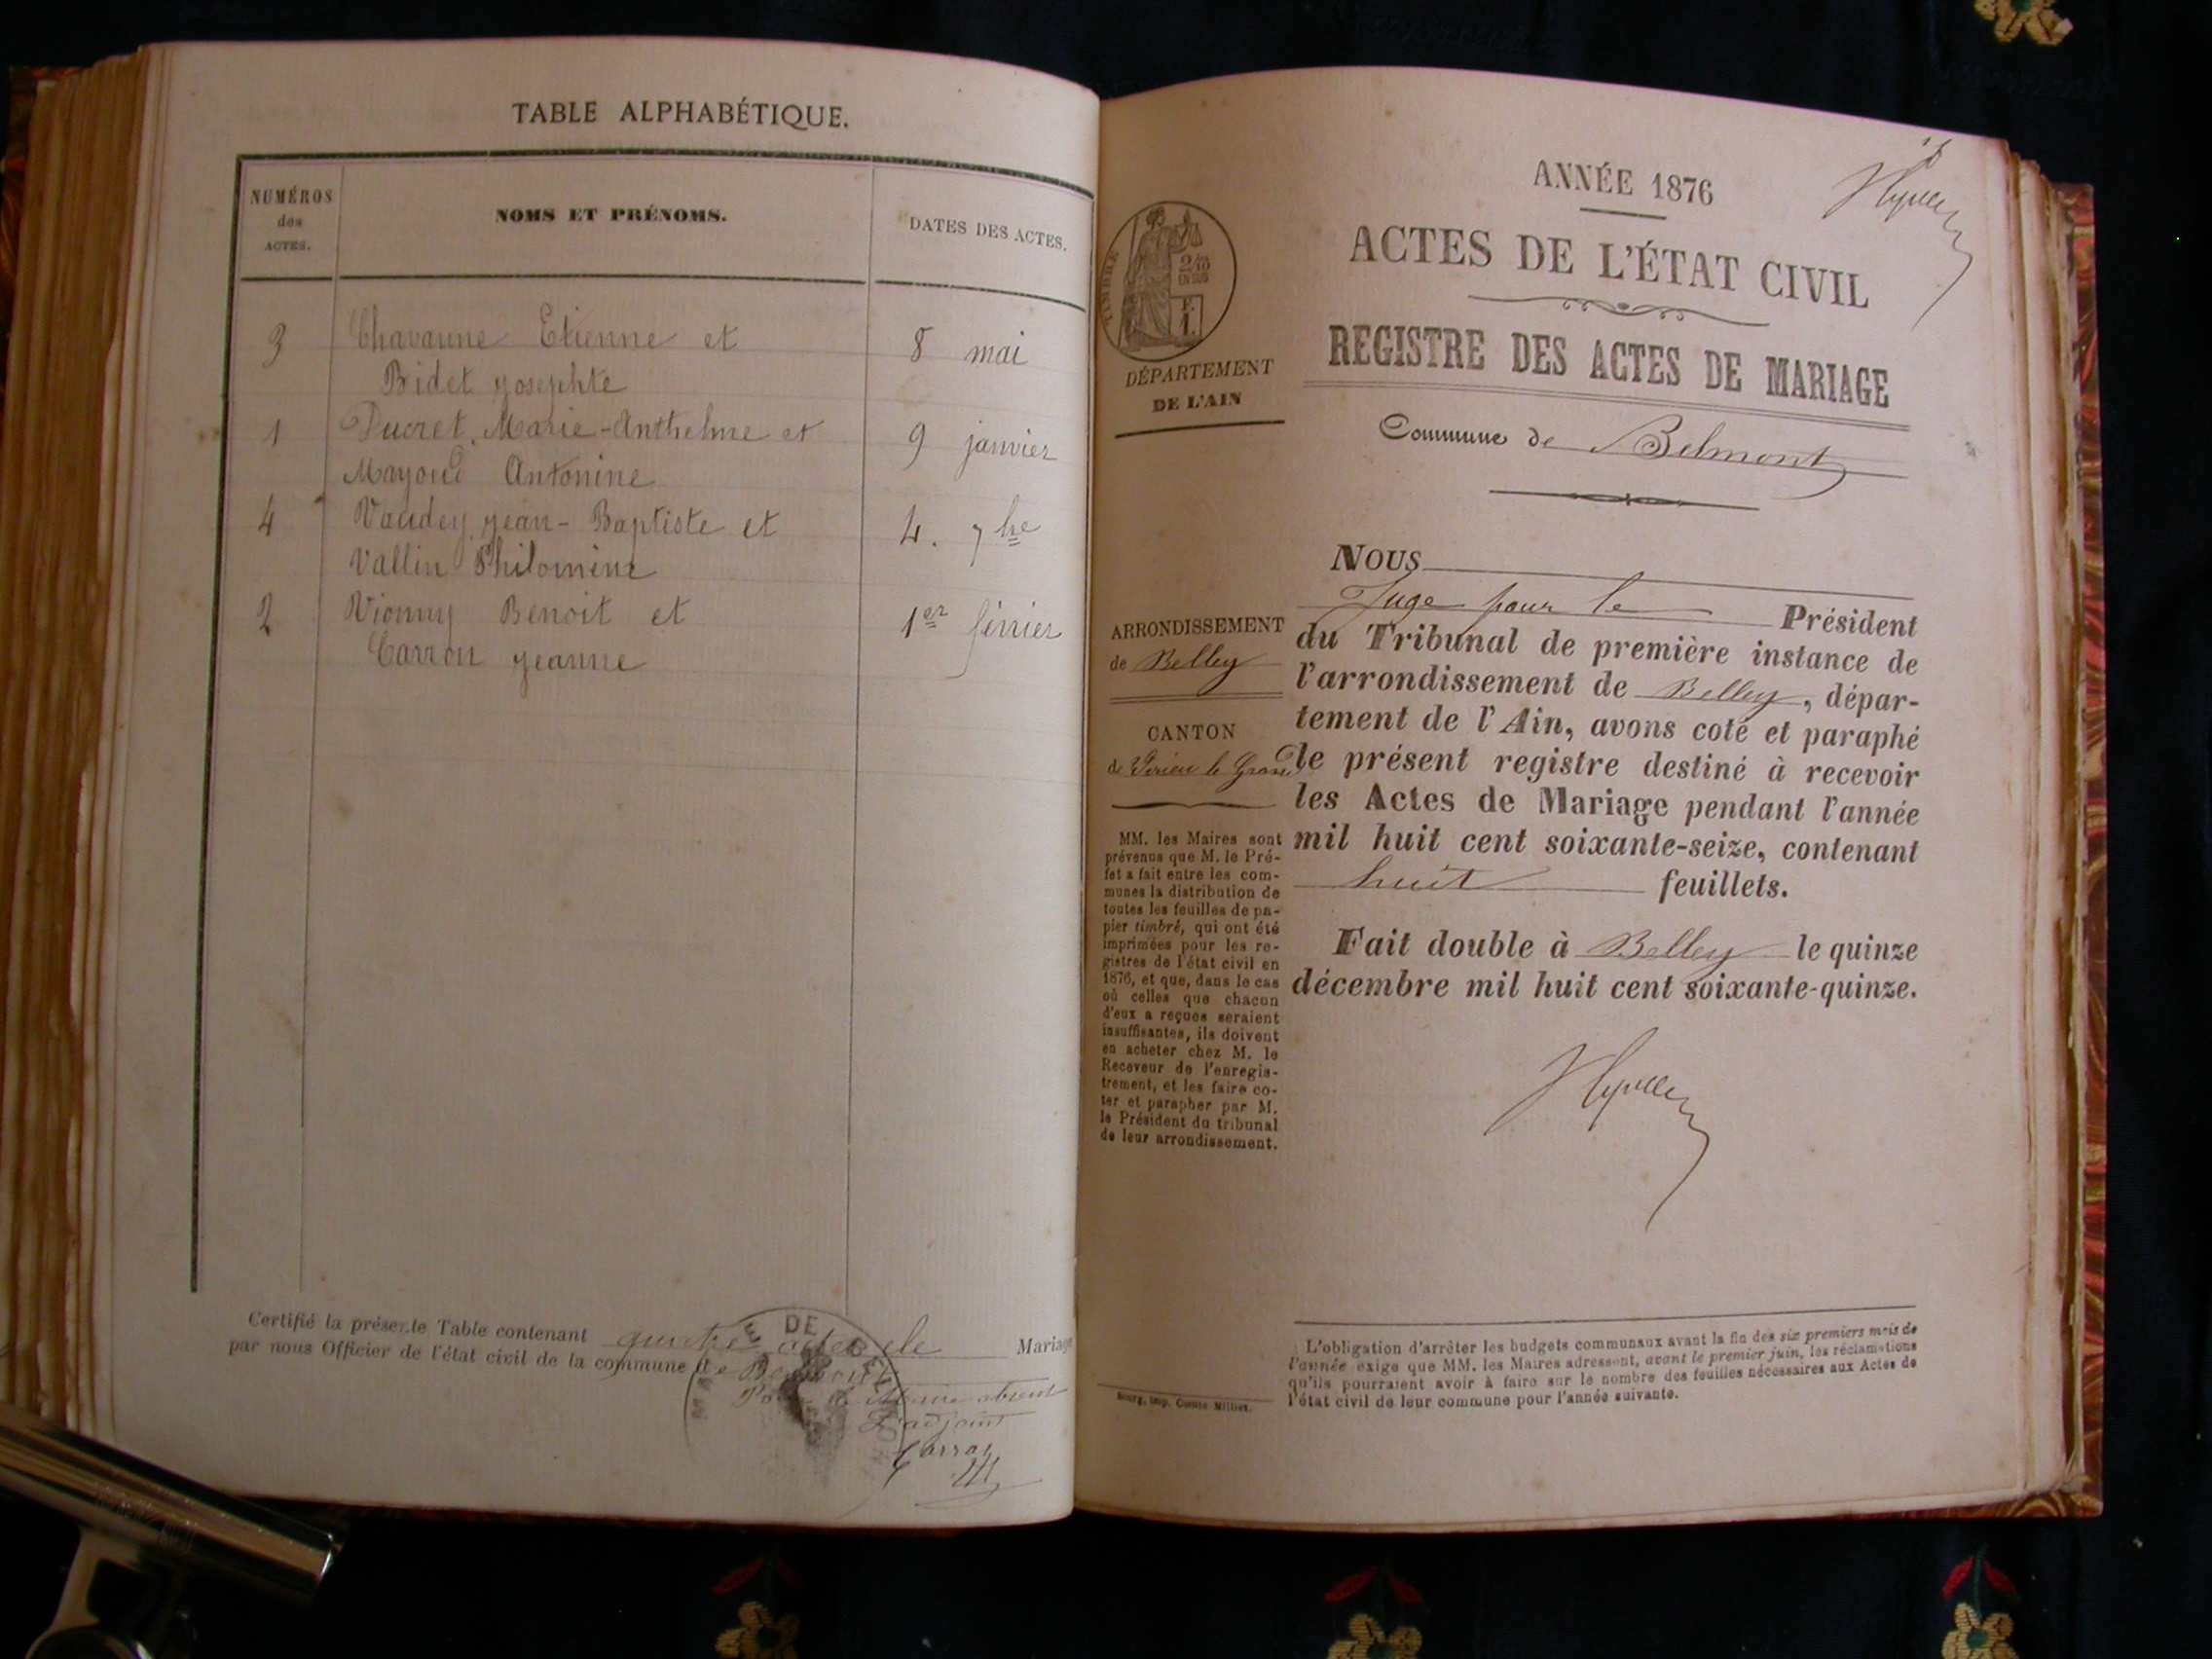 TABLE ALPHABÉTIQUE.
NUMÉROS
des
ACTES.
NOMS ET PRÉNOMS.
DATES DES ACTES.
3 Chavanne Etienne et 8 mai
Bidet Josephte
1 Ducret, Marie-Anthelme et 9 janvier
Mayoud Antonine
4 Vaudey Jean-Baptiste et 4. 7bre
Vallin Philomène
2 Vionny Benoit et 1er février
Carron Jeanne
Certifié la présente Table contenant quatre actes de Mariage
par nous Officier de l'état civil de la commune de Belmont
Pour le Maire absent
L'adjoint
Carron
ANNÉE 1876
ACTES DE L'ÉTAT CIVIL
REGISTRE DES ACTES DE MARIAGE
Commune de Belmont
TIMBRE
2/10
EN SUS
DÉPARTEMENT
DE L'AIN
ARRONDISSEMENT
de Belley
CANTON
de Virieu le Grand
MM. les Maires sont
prévenus que M. le Pré-
fet a fait entre les com-
munes la distribution de
toutes les feuilles de pa-
pier timbré, qui ont été
imprimées pour les re-
gistres de l'état civil en
1876, et que, dans le cas
où celles que chacun
d'eux a reçues seraient
insuffisantes, ils doivent
en acheter chez M. le
Receveur de l'enregis-
trement, et les faire co-
ter et parapher par M.
le Président du tribunal
de leur arrondissement.
Bourg, imp. Comte Milliet.
NOUS
Juge pour le Président
du Tribunal de première instance de
l'arrondissement de Belley, dépar-
tement de l'Ain, avons coté et paraphé
le présent registre destiné à recevoir
les Actes de Mariage pendant l'année
mil huit cent soixante-seize, contenant
huit feuillets.
Fait double à Belley le quinze
décembre mil huit cent soixante-quinze.
L'obligation d'arrêter les budgets communaux avant la fin des six premiers mois de
l'année exige que MM. les Maires adressent, avant le premier juin, les réclamations
qu'ils pourraient avoir à faire sur le nombre des feuilles nécessaires aux Actes de
l'état civil de leur commune pour l'année suivante.